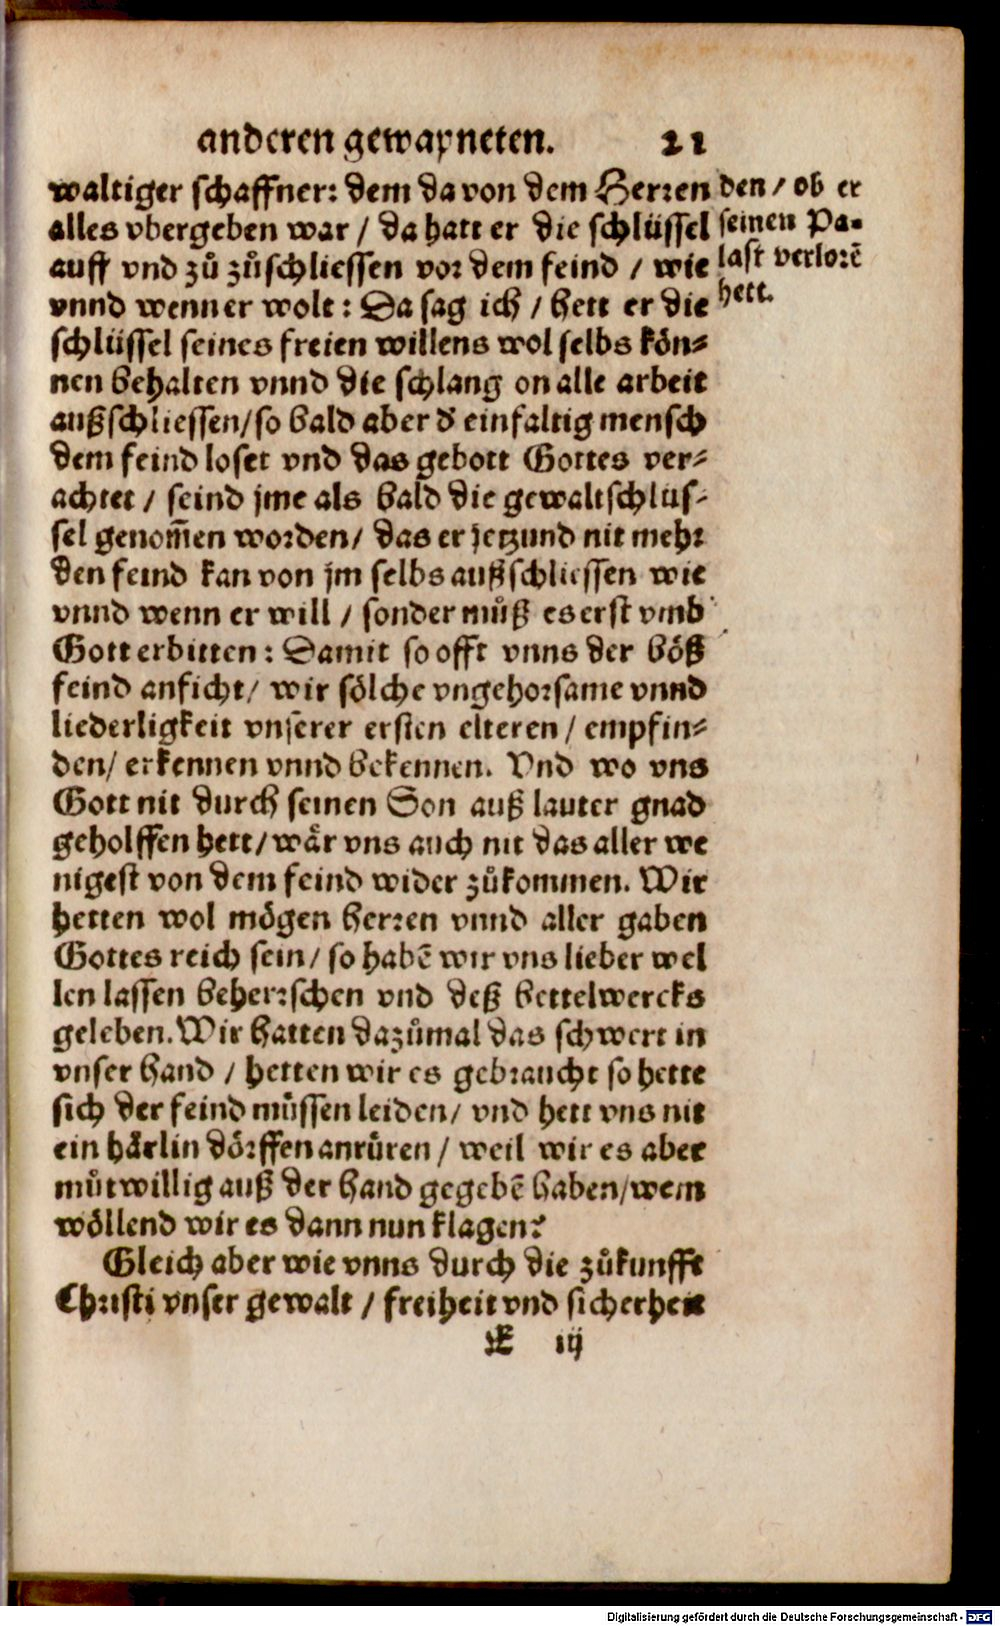 anderen gewapneten. 21
waltiger schaffner: dem da von dem Herren
alles vbergeben war / da hatt er die schlüssel
auff vnd zů zůschliessen vor dem feind / wie
vnnd wenn er wolt: Da sag ich / hett er die
schlüssel seines freien willens wol selbs kön⸗
nen behalten vnnd die schlang on alle arbeit
außschliessen/ so bald aber d̕ einfaltig mensch
dem feind loset vnd das gebott Gottes ver⸗
achtet / seind jme als bald die gewaltschlüs⸗
sel genom̃en worden/ das er jetzund nit mehr
den feind kan von jm selbs außschliessen wie
vnnd wenn er will / sonder můß es erst vmb
Gott erbitten: Damit so offt vnns der böß
feind anficht/ wir sölche vngehorsame vnnd
liederligkeit vnserer ersten elteren / empfin⸗
den/ erkennen vnnd bekennen. Vnd wo vns
Gott nit durch seinen Son auß lauter gnad
geholffen hett/ wår vns auch nit das aller we
nigest von dem feind wider zůkommen. Wir
hetten wol mögen herren vnnd aller gaben
Gottes reich sein / so habẽ wir vns lieber wel
len lassen beherrschen vnd deß bettelwercks
geleben. Wir hatten dazůmal das schwert in
vnser hand / hetten wir es gebraucht so hette
sich der feind müssen leiden/ vnd hett vns nit
ein hårlin dörffen anrüren / weil wir es aber
můtwillig auß der hand gegebẽ haben/ wem
wöllend wir es dann nun klagen?
Gleich aber wie vnns durch die zůkunfft
Christi vnser gewalt / freiheit vnd sicherheit
iij
den / ob er
seinen Pa⸗
last verlorẽ
hett.
Digitalisierung gefördert durch die Deutsche Forschungsgemeinschaft - DFG